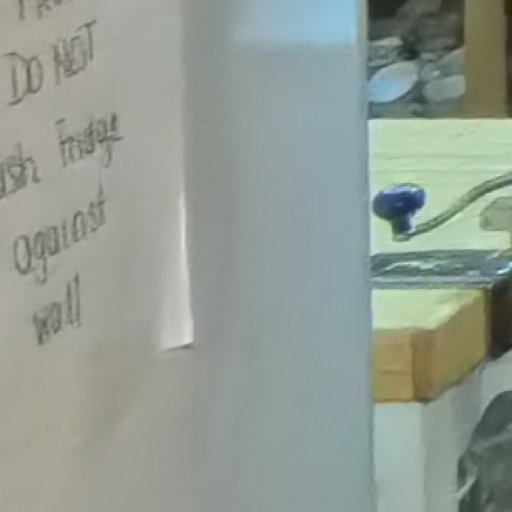 DO NOT
Fridge
against
wall